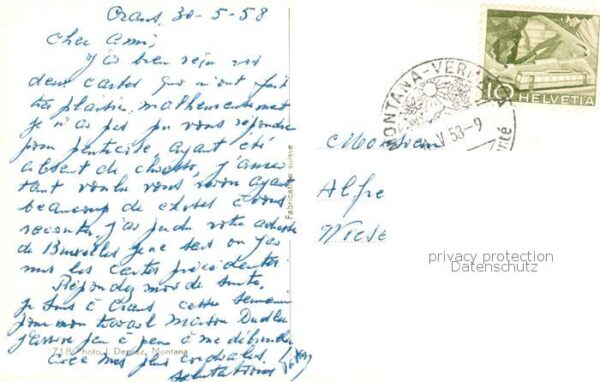 Crans, 30-5-58
Cher ami,
J'ai bien reçu vos
deux cartes qui m'ont fait
très plaisir, malheureusement
je n'ai pas pu vous répondre
pour pentecôte, ayant été
absent de chez moi, j'aurai
tant voulu vous voir ayant
beaucoup de choses à vous
raconter, j'ai perdu votre adresse
de Bruxelles je ne sais où j'ai
mis les cartes précédentes.
Répondez moi de suite.
je suis à Crans, cette semaine
pour mon travail maison Dudler
j'arrive peu à peu à me débrouiller
mes plus cordiales
salutations
718 Photo J. Deprez, Montana
Fabrication suisse
MONTANA-VERMALA
V 58-9
10 HELVETIA
Monsieur
Alfre
Wiese
privacy protection
Datenschutz